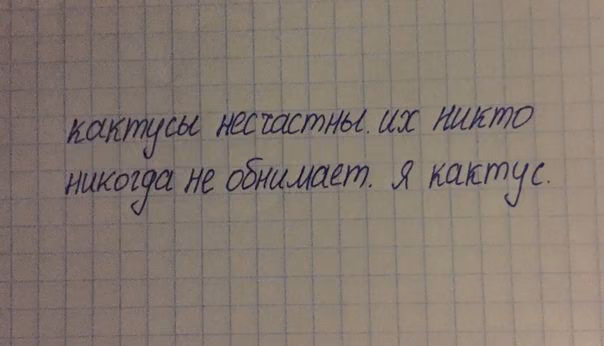 кактусы несчастны. их никто
никогда не обнимает. я кактус.